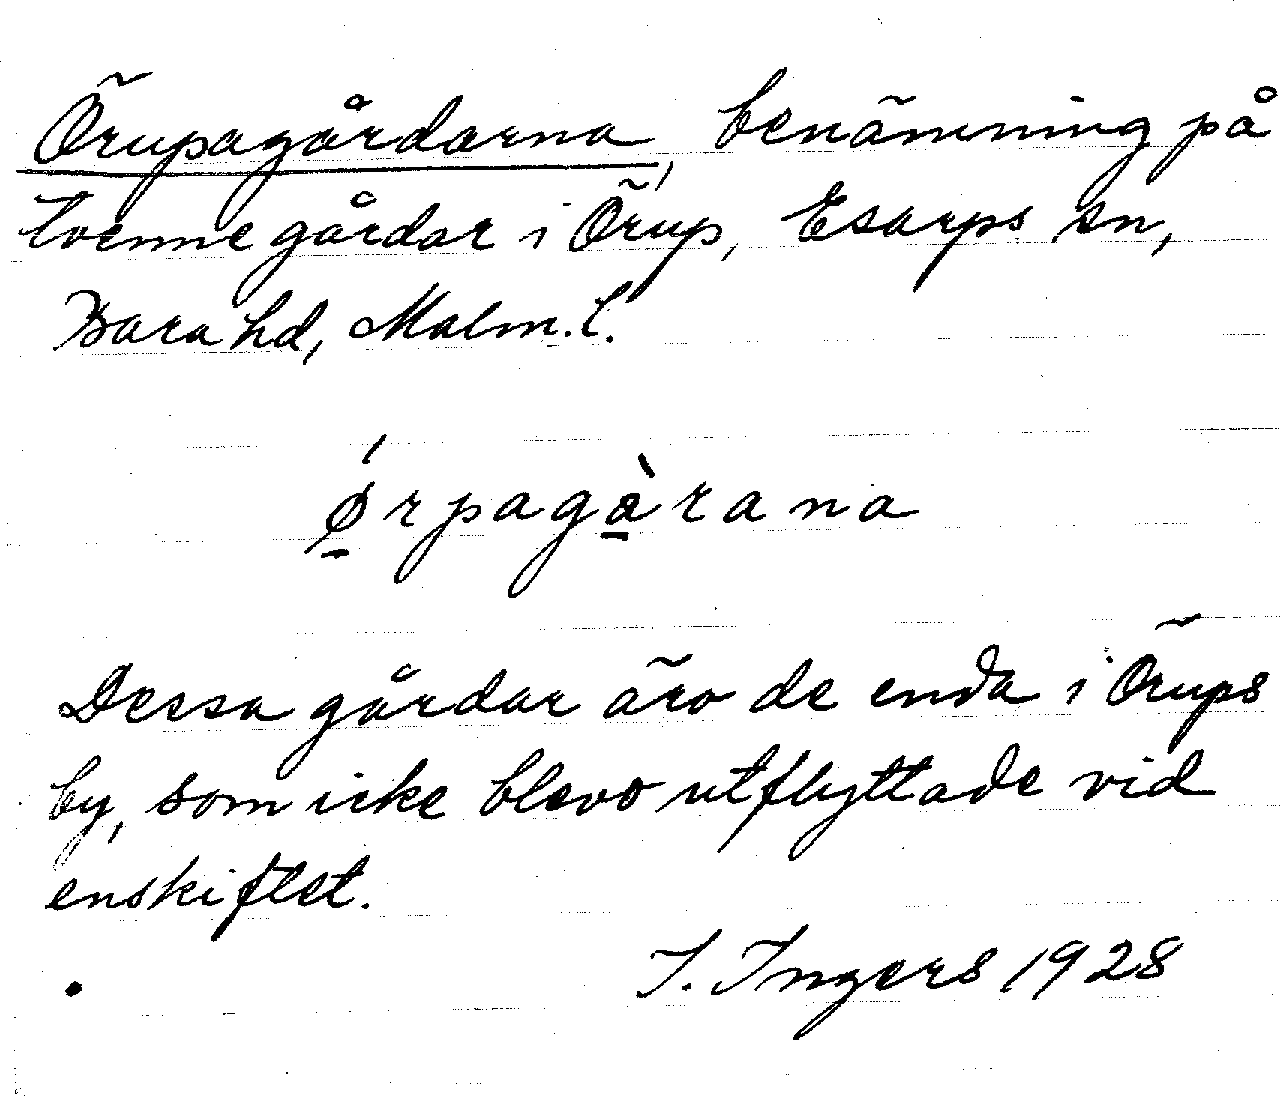 Örupagårdarna, benämning på
tvenne gårdar i Örup, Esarps sn,
Bara hd, Malm. l.
ǿ̱rpagà̱rana
Dessa gårdar äro de enda i Örups
by, som icke blevo utflyttade vid
enskiftet.
I. Ingers 1928